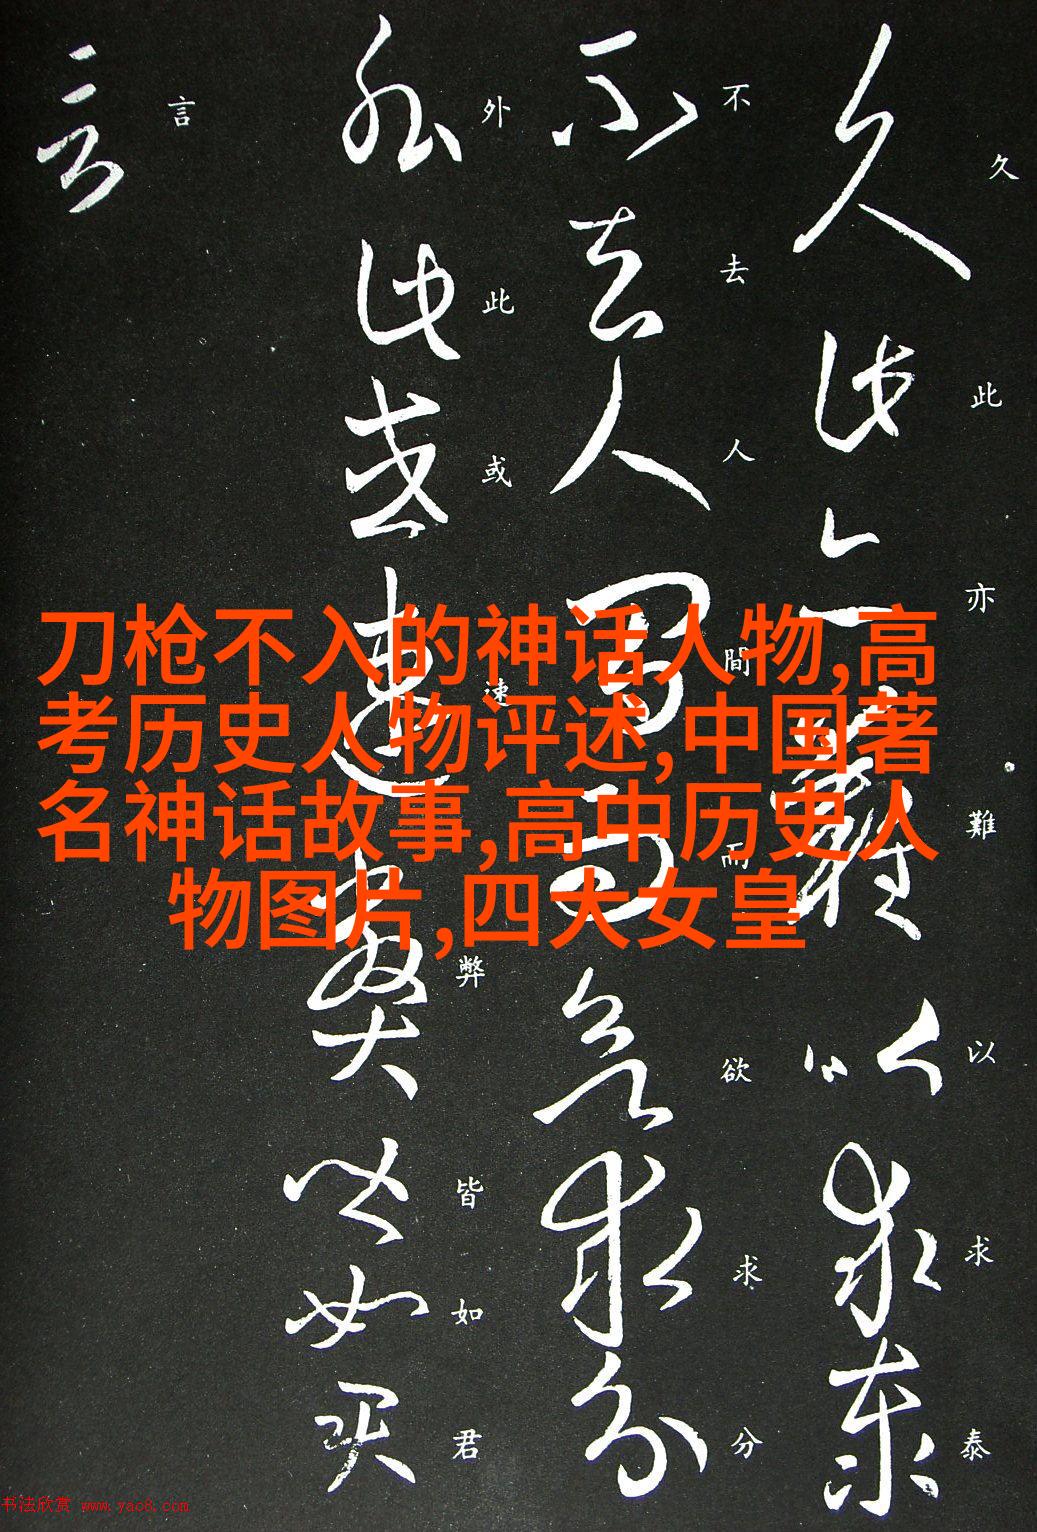 久此亦難以求泰
不去人間而欲求分
外此或速弊皆如君
言
刀枪不入的神话人物,高
考历史人物评述,中国著
名神话故事,高中历史人
物图片,四大女皇
书法欣赏 www.yac8.com